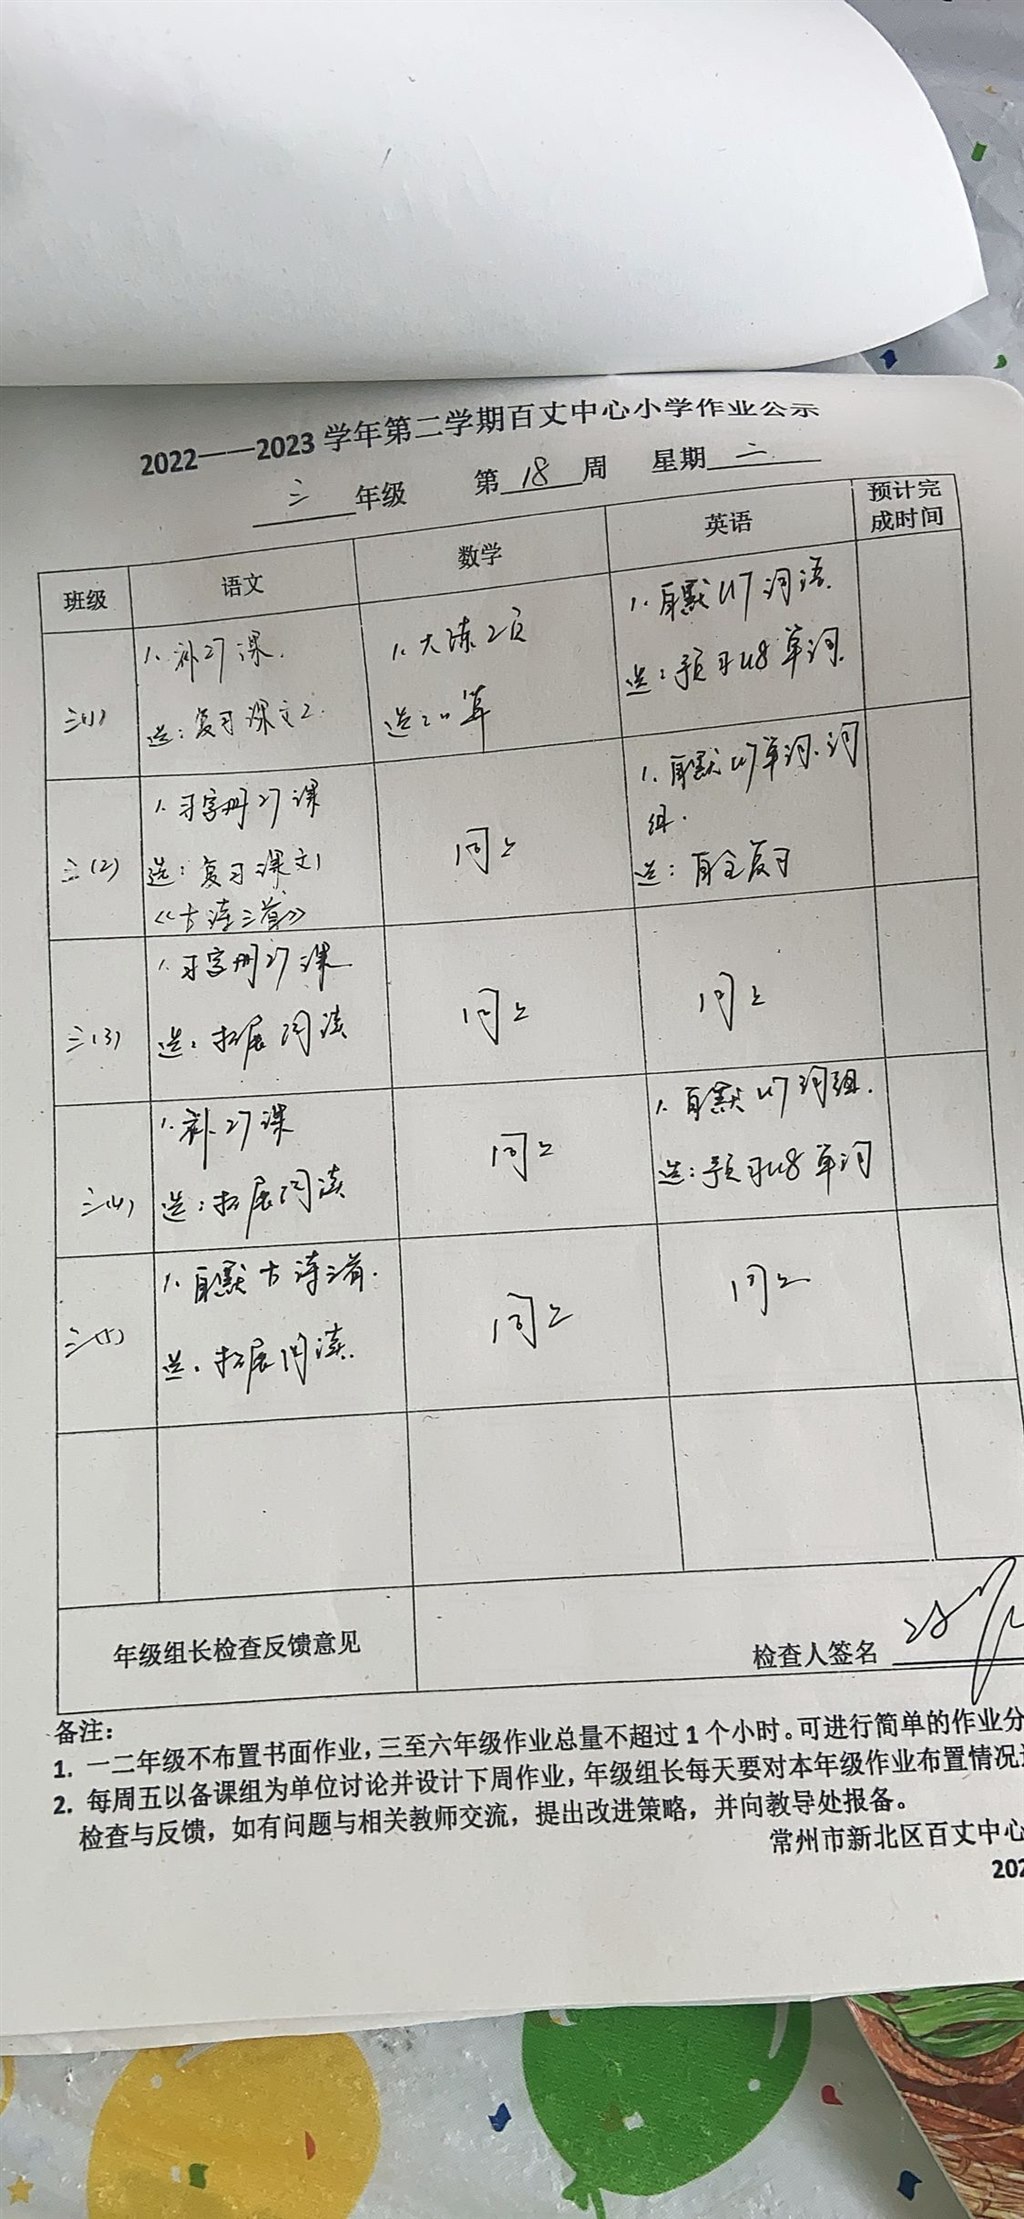 2022——2023 学年第二学期百丈中心小学作业公示
三 年级 第 18 周 星期 二
班级 语文 数学 英语 预计完
成时间
三(1)
1. 补27课.
选: 复习课文2.
1. 大练2页
选: 口算
1. 自默U7词语.
选: 预习U8单词.
三(2)
1. 习字册27课
选: 复习课文1
《古诗三首》
同上
1. 自默U7单词.词
组.
选: 自主复习
三(3)
1. 习字册27课
选: 拓展阅读
同上
同上
三(4)
1. 补27课
选: 拓展阅读
同上
1. 自默U7词组.
选: 预习U8单词
三(5)
1. 自默古诗三首.
选: 拓展阅读.
同上
同上
年级组长检查反馈意见
检查人签名
备注:
1. 一二年级不布置书面作业,三至六年级作业总量不超过 1 个小时。可进行简单的作业分
2. 每周五以备课组为单位讨论并设计下周作业,年级组长每天要对本年级作业布置情况
检查与反馈,如有问题与相关教师交流,提出改进策略,并向教导处报备。
常州市新北区百丈中心
202